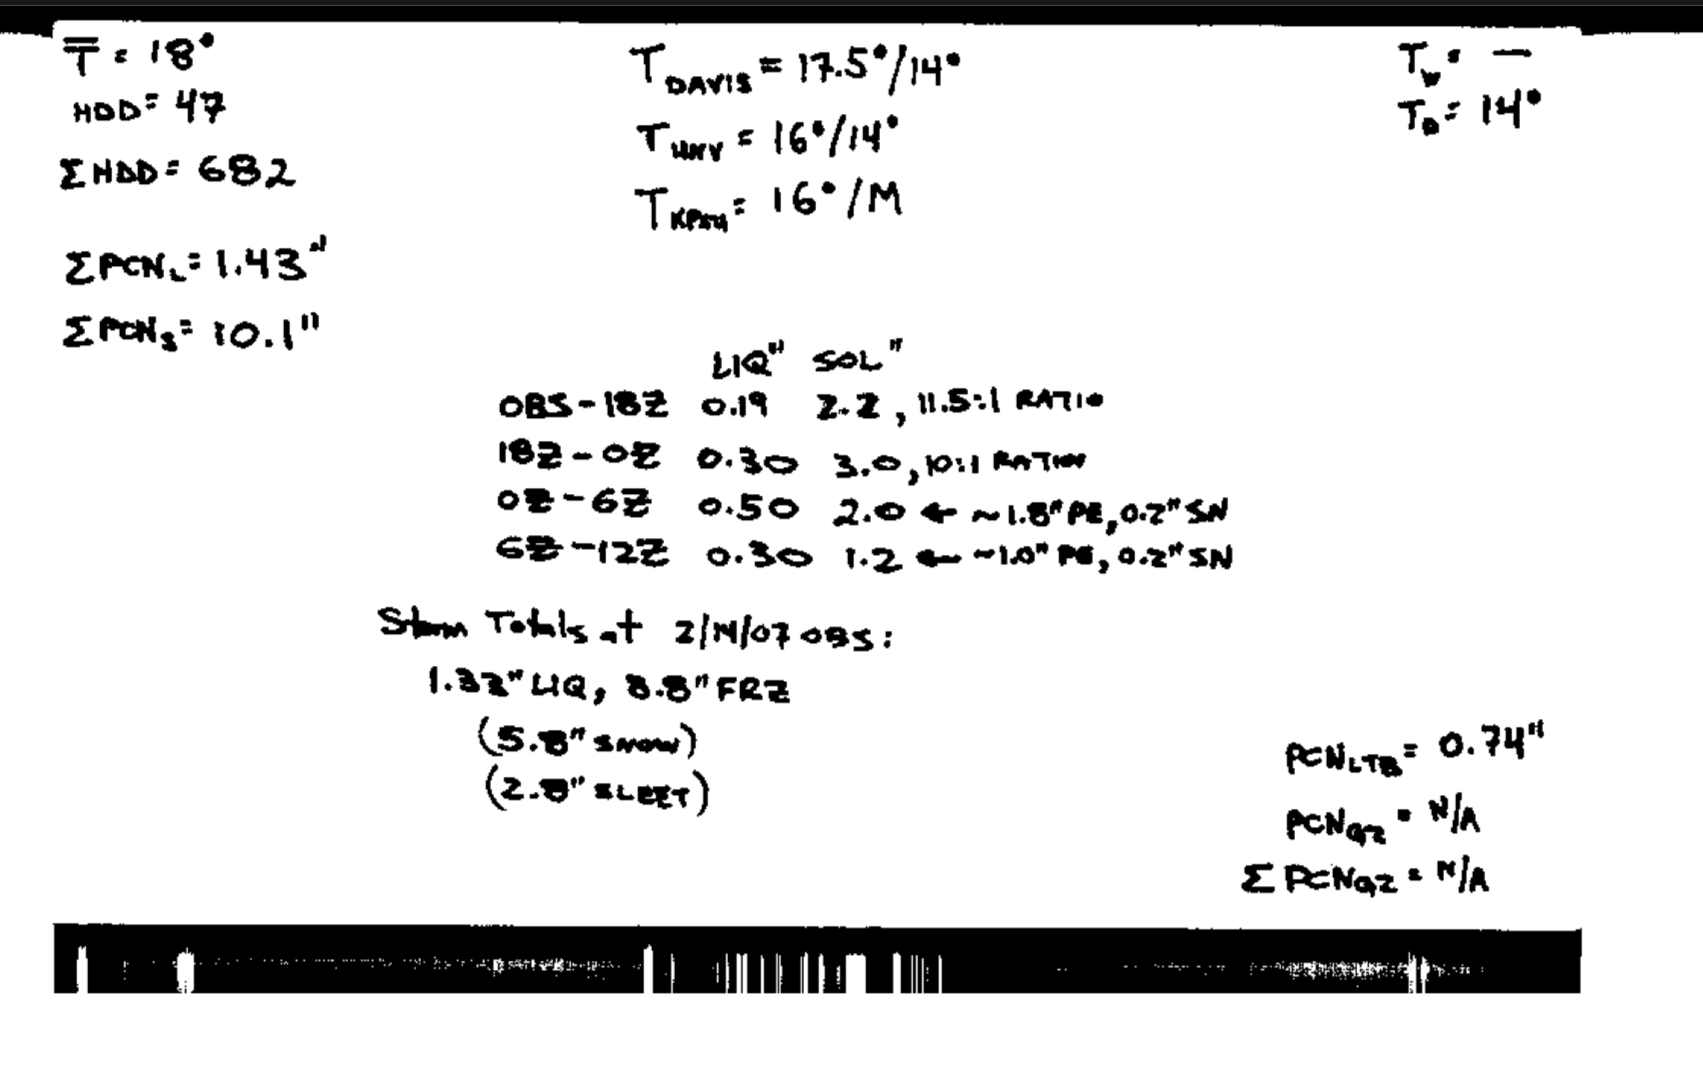 T̅ = 18°
HDD = 47
ΣHDD = 682
ΣPCN_L = 1.43"
ΣPCN_S = 10.1"
T_DAVIS = 17.5°/14°
T_UNV = 16°/14°
T_KPSU = 16°/M
T_W = —
T_D = 14°
LIQ" SOL"
OBS-18Z 0.19 2.2, 11.5:1 RATIO
18Z-0Z 0.30 3.0, 10:1 RATIO
0Z-6Z 0.50 2.0 ← ~1.8" PE, 0.2" SN
6Z-12Z 0.30 1.2 ← ~1.0" PE, 0.2" SN
Storm Totals at 2/14/07 OBS:
LIQ, 8.8" FRZ
(5.8" SNOW)
(2.8" SLEET)
PCN_LTB = 0.74"
PCN_QZ = N/A
ΣPCN_QZ = N/A